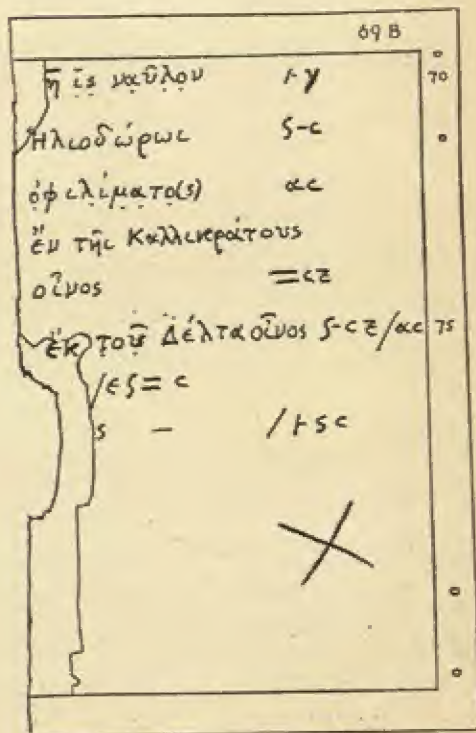 69 B
η ἰς ναῦλον ⊦γ
70
Ἡλιοδώρωι ϛ-c
ὀφιλίματο(s) αc
ἔν τῆι Καλλικράτους
οἶνος =cz
ἔκ τοῦ Δέλτα οἶνος ϛ-cz/αc 75
/εϛ=c
s - /⊦ϛc